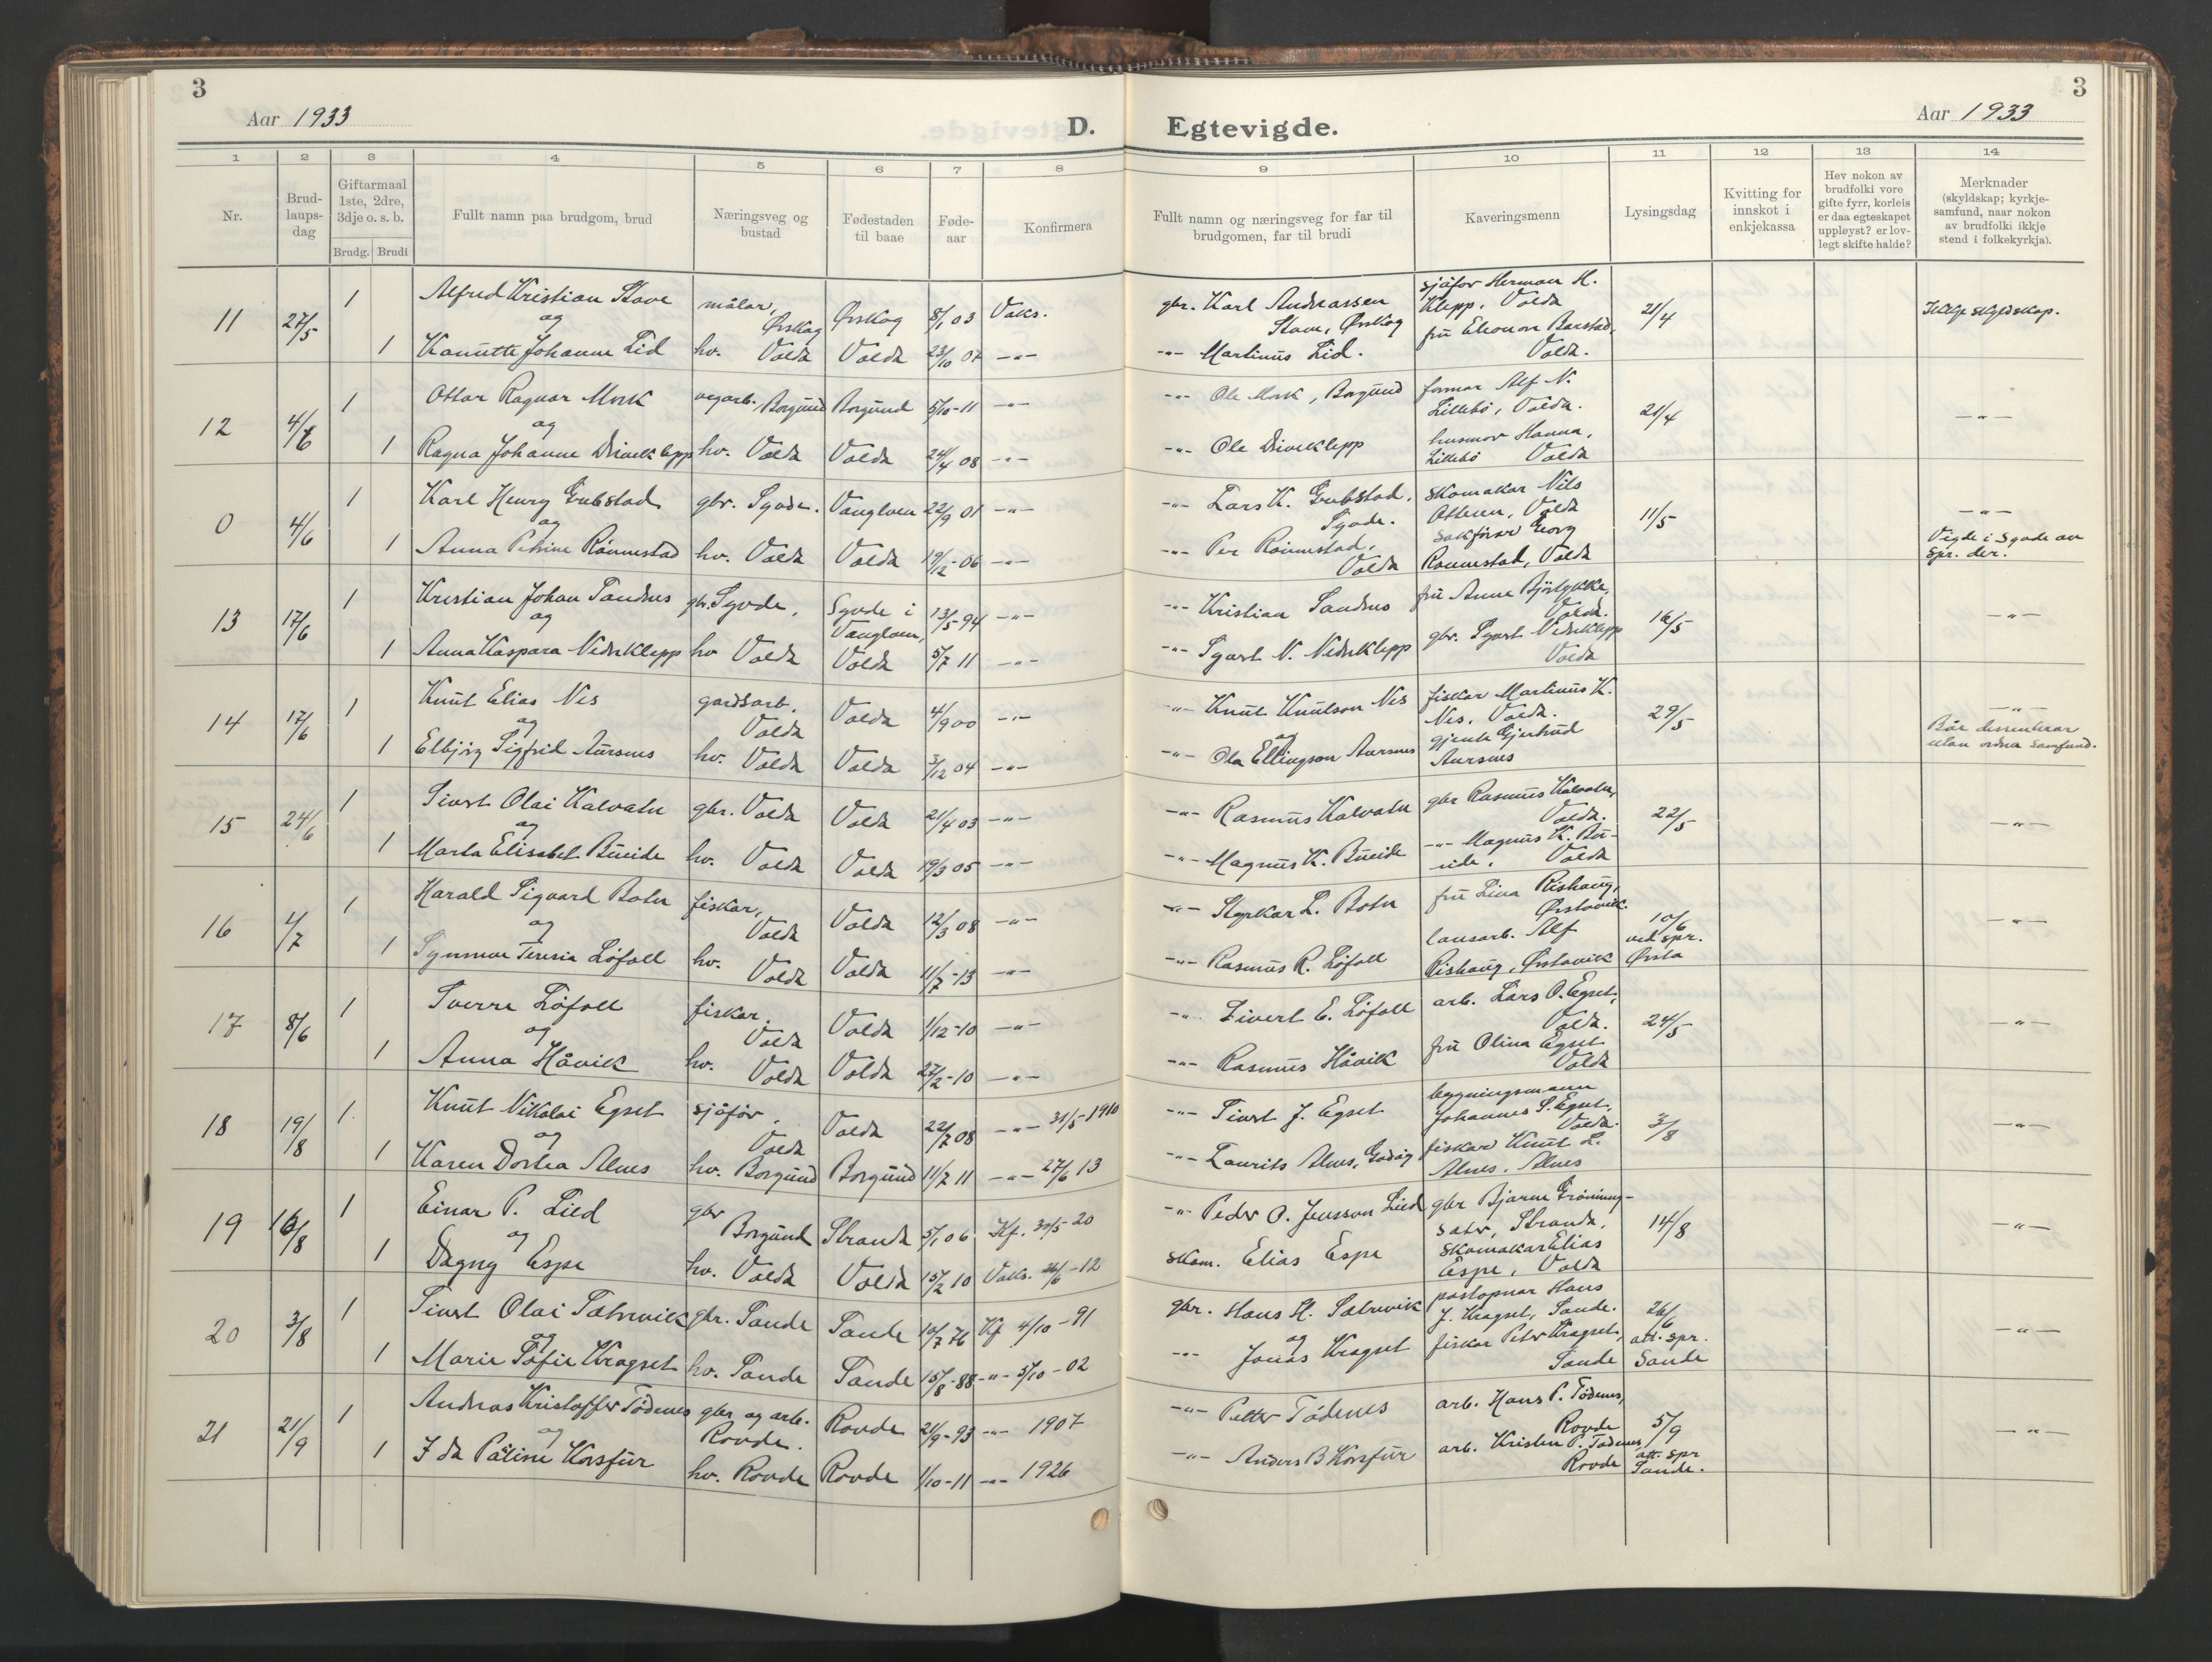 3
Aar 1933
D.
1 2 3 4 5 6 7 8
Nr.
Brud-
laups-
dag
Giftarmaal
1ste, 2dre,
3dje o. s. b.
Brudg. Brudi
Fullt namn paa brudgom, brud
Næringsveg og
bustad
Fødestaden
til baae
Føde-
aar
Konfirmera
11 27/5 1 Alfred Kristian Stave målar, Ørskog Ørskog 8/1 03 Vaks.
og
1 Kanutte Johanne Lid hv. Volda Volda 23/10 07 -"-
12 4/6 1 Ottar Ragnar Mork vegarb. Borgund Borgund 5/10-11 -"-
og
1 Ragna Johanne Driveklepp hv. Volda Volda 24/4 08 -"-
0 4/6 1 Karl Henry Grubstad gbr. Syvde. Vanylven 22/9 01 -"-
og
1 Anna Petrine Rönnestad hv. Volda Volda 19/12-06 -"-
13 17/6 1 Kristian Johan Sandnes gbr. Syvde, Syvde i Vanylven, 13/5-94 -"-
og
1 Anna Kaspara Nedreklepp hv Volda Volda 5/7 11 -"-
14 17/6 1 Knut Elias Nes gardsarb. Volda Volda 4/9 00 -"-
og
1 Elbjørg Sigfrid Aursnes hv. Volda Volda 3/12 04 -"-
15 24/6 1 Sivert Olai Kalvatn gbr. Volda Volda 21/4 03 -"-
og
1 Marta Elisabet Bueide hv. Volda Volda 19/3 05 -"-
16 4/7 1 Harald Sigvard Botn fiskar, Volda Volda 12/3 08 -"-
og
1 Synnøve Teresia Löfoll hv. Volda Volda 11/7-13 -"-
17 8/6 1 Sverre Löfoll fiskar. Volda Volda 1/12-10 -"-
og
1 Anna Håvik hv. Volda Volda 27/2-10 -"-
18 19/8 1. Knut Nikolai Egset sjåfør, Volda Volda 22/7 08 -"- 31/5-1910
og
1 Karen Dortea Alnes hv. Borgund Borgund 11/7 11 -"- 27/6 13
19 16/8 1 Einar P. Lied gbr Borgund Stranda 5/1 06 Kf. 30/5 20
og
1 Dagny Espe hv. Volda Volda 15/2 10 Vaks. 26/6-12
20 3/8 1 Sivert Olai Sætrevik gbr. Sande Sande 10/7 76 Kf 4/10-91
og
1 Marie Sofie Kragset hv. Sande Sande 15/8-88 -"- 5/10-02
21 21/9 1 Andreas Kristoffer Tödenes gbr og arb. Rovde. Rovde 21/9-93 -"- 1907
og
1 Ida Påline Korsfur hv. Rovde Rovde 1/10-11 -"- 1926
3
Egtevigde.
Aar 1933
9 10 11 12 13 14
Fullt namn og næringsveg for far til
brudgomen, far til brudi
Kaveringsmenn
Lysingsdag
Kvitting for
innskot i
enkjekassa
Hev nokon av
brudfolki vore
gifte fyrr, korleis
er daa egteskapet
uppløyst? er lov-
legt skifte halde?
Merknader
(skyldskap; kyrkje-
samfund, naar nokon
av brudfolki ikkje
stend i folkekyrkja).
gbr. Karl Andreassen Stave, Ørskog sjåfør Herman H. Klepp, Volda 21/4 Ikkje skyldskap.
-"- Martinus Lid. fru Eleonore Barstad, Volda.
-"- Ole Mork, Borgund formar Alf N. Lillebö, Volda. 21/4 -"-
-"- Ole Driveklepp husmor Hanna, Lillebö Volda
-"- Lars K. Grubstad, Syvde. skomakar Nils Ottesen, Volda 11/5 -"-
-"- Per Rönnestad, Volda sakförar Georg Rönnestad, Volda Vigde i Syvde av spr. der.
-"- Kristian Sandnes fru Anne Björlykke, Volda. 16/5 -"-
-"- Syvert N. Nedreklepp gbr. Syvert Nedreklepp Volda
-"- Knut Knutson Nes fiskar Martinus K. Nes, Volda. 29/5 -"-
og
-"- Ola Ellingson Aursnes gjente Gjertrud Aursnes Båe dissenterar utan ordna samfund.
-"- Rasmus Kalvatn gbr Rasmus Kalvatn, Volda. 22/5 -"-
-"- Magnus K. Bueide -"- Magnus K. Bu-
eide, Volda
-"- Styrkar L. Botn fru Lina Rishaug, Ørstavik. 10/6 ved spr. Ørsta -"-
-"- Rasmus R. Löfoll lausarb. Alf Rishaug, Ørstavik
-"- Sivert E. Löfoll arb. Lars O. Egset, Volda. 24/5 -"-
-"- Rasmus Håvik fru Olina Egset Volda
-"- Sivert J. Egset bygningsmann Johannes S. Egset, Volda. 3/8 -"-
-"- Laurits Alnes, Godöy fiskar Knut L. Alnes, Alnes
-"- Peder O. Jensson Lied gbr Bjarne Gröning-
sæter, Stranda, 14/8 -"-
skom. Elias Espe skomakar Elias Espe, Volda
gbr. Hans H. Sætrevik postopnar Hans J. Kragset, Sande. 26/6 att. spr. Sande -"-
og
-"- Jonas Kragset fiskar Peter Kragset, Sande
-"- Petter Tödenes arb. Hans P. Tödenes, Rovde 5/9 att. spr Sande. -"-
-"- Anders B Korsfur arb. Kristen P. Tödenes Rovde